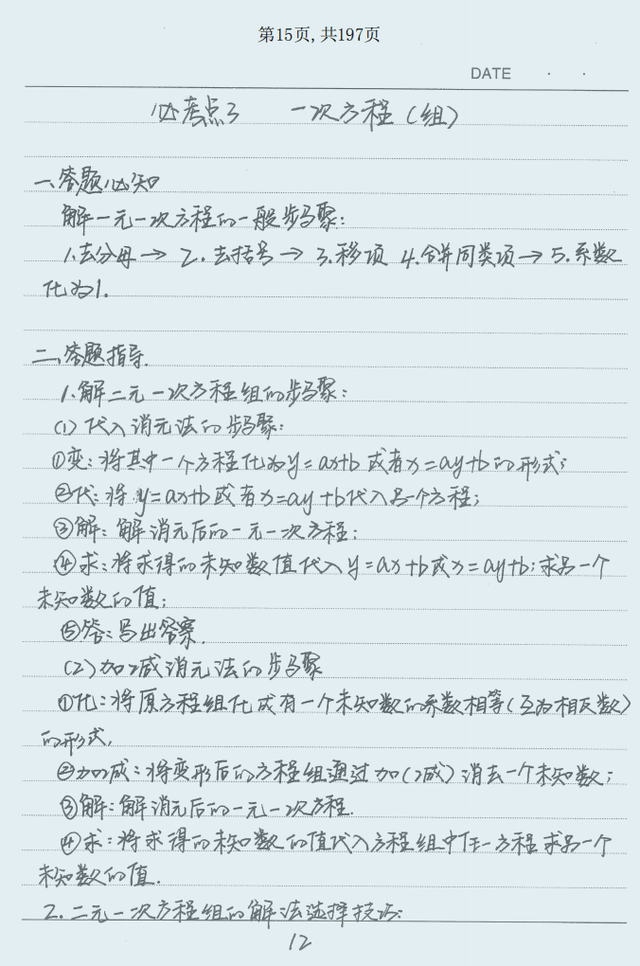 第15页,共197页
DATE · ·
必考点3 一次方程(组)
一、答题必知
解一元一次方程的一般步骤:
1.去分母→2.去括号→3.移项 4.合并同类项→5.系数
化为1.
二、答题指导.
1.解二元一次方程组的步骤:
(1)代入消元法的步骤:
①变:将其中一个方程化为y=ax+b或者x=ay+b的形式;
②代:将y=ax+b或者x=ay+b代入另一个方程;
③解:解消元后的一元一次方程;
④求:将求得的未知数值代入y=ax+b或x=ay+b;求另一个
未知数的值;
⑤答:写出答案.
(2)加减消元法的步骤
①化:将原方程组化成有一个未知数的系数相等(互为相反数)
的形式.
②加减:将变形后的方程组通过加(减)消去一个未知数;
③解:解消元后的一元一次方程.
④求:将求得的未知数的值代入方程组中任一方程求另一个
未知数的值.
2.二元一次方程组的解法选择技巧:
12